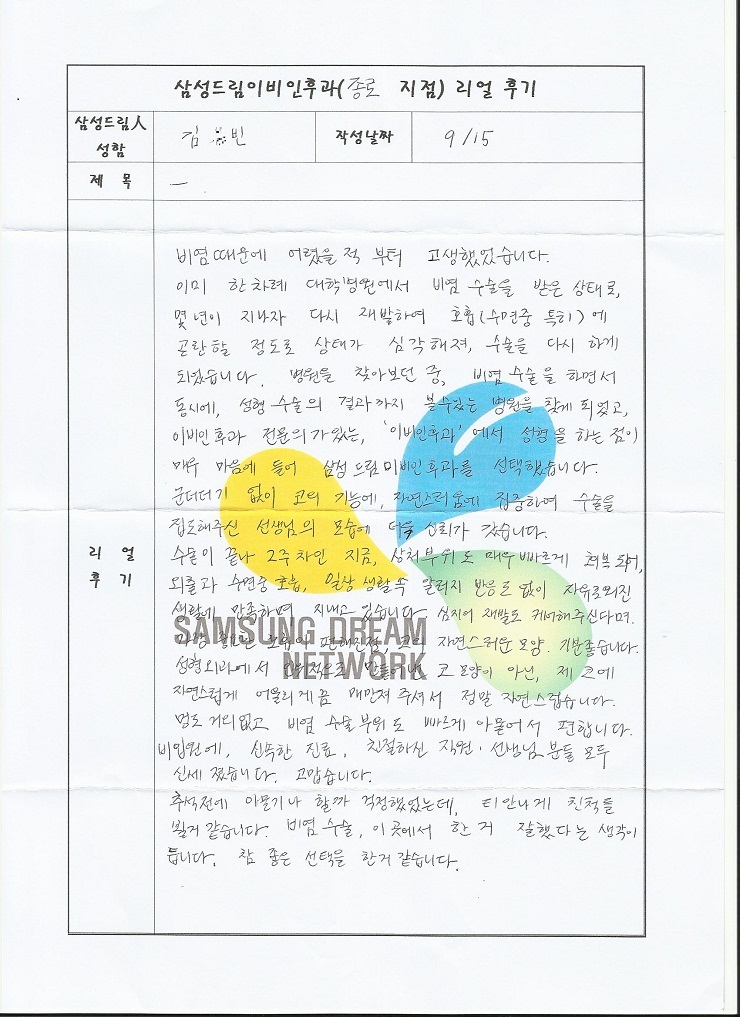 삼성드림이비인후과(종로 지점) 리얼 후기
삼성드림人
성함
김 빈
작성날짜
9/15
제 목
—
리 얼
후 기
비염때문에 어렸을적 부터 고생했었습니다.
이미 한차례 대학병원에서 비염 수술을 받은 상태로,
몇년이 지나자 다시 재발하여 호흡(수면중 특히)에
곤란할 정도로 상태가 심각해져, 수술을 다시 하게
되었습니다. 병원을 찾아보던 중, 비염 수술을 하면서
동시에, 성형 수술의 결과까지 볼수있는 병원을 찾게 되었고,
이비인후과 전문의가있는, '이비인후과'에서 성형을 하는 점이
매우 마음에 들어 삼성드림이비인후과를 선택했습니다.
군더더기 없이 코의 기능에, 자연스러움에 집중하여 수술을
집도해주신 선생님의 모습에 더욱 신뢰가 갔습니다.
수술이 끝나 2주차인 지금, 상처부위도 매우빠르게 회복 되어,
외출과 수면중 호흡, 일상 생활속 알러지 반응도 없이 자유로워진
생활에 만족하며 지내고 있습니다. 심지어 재발도 케어해주신다며.
가장 중요한 호흡이 편해진점, 코의 자연스러운 모양. 기분좋습니다.
성형외과에서 만들어낸 코 모양이 아닌, 제 코에
자연스럽게 어울리게끔 매만져 주셔서 정말 자연스럽습니다.
멍도 거의없고 비염 수술부위도 빠르게 아물어서 편합니다.
비입원에, 신속한 진료, 친절하신 직원·선생님 분들 모두
신세 졌습니다. 고맙습니다.
추석전에 아물기나 할까 걱정했었는데, 티안나게 친척들
뵐거 같습니다. 비염 수술, 이곳에서 한 거 잘했다는 생각이
듭니다. 참 좋은 선택을 한거같습니다.
SAMSUNG DREAM
NETWORK